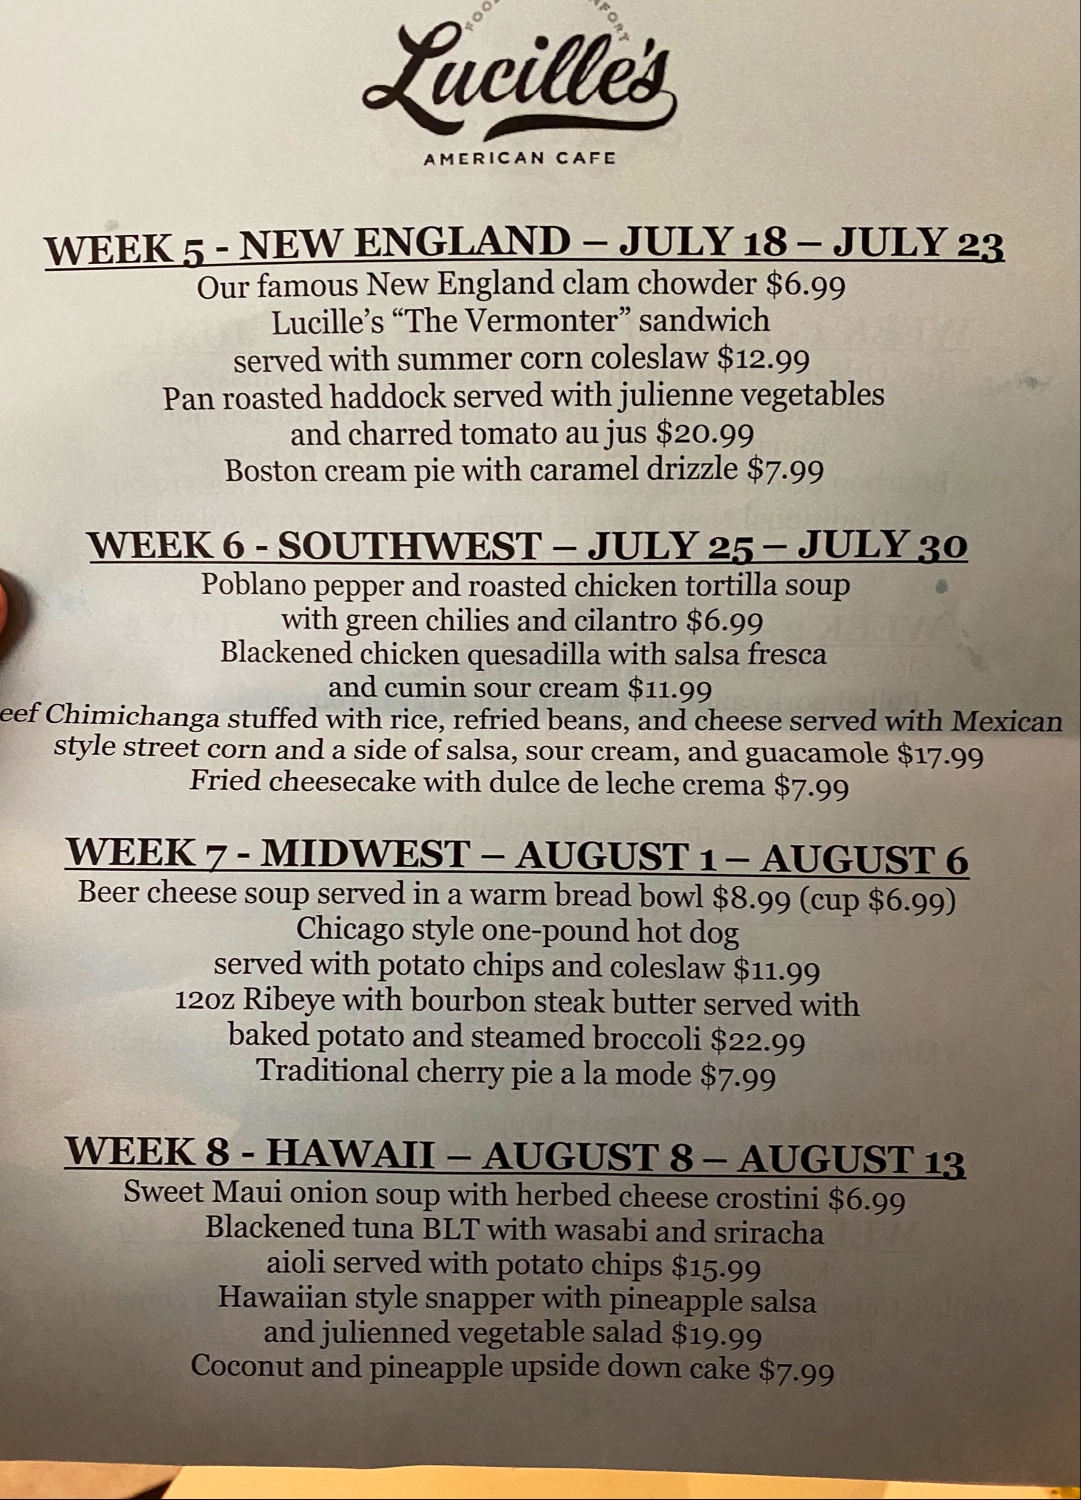 Lucille's
AMERICAN CAFE
WEEK 5 - NEW ENGLAND – JULY 18 – JULY 23
Our famous New England clam chowder $6.99
Lucille's “The Vermonter” sandwich
served with summer corn coleslaw $12.99
Pan roasted haddock served with julienne vegetables
and charred tomato au jus $20.99
Boston cream pie with caramel drizzle $7.99
WEEK 6 - SOUTHWEST – JULY 25 – JULY 30
Poblano pepper and roasted chicken tortilla soup
with green chilies and cilantro $6.99
Blackened chicken quesadilla with salsa fresca
and cumin sour cream $11.99
eef Chimichanga stuffed with rice, refried beans, and cheese served with Mexican
style street corn and a side of salsa, sour cream, and guacamole $17.99
Fried cheesecake with dulce de leche crema $7.99
WEEK 7 - MIDWEST – AUGUST 1 – AUGUST 6
Beer cheese soup served in a warm bread bowl $8.99 (cup $6.99)
Chicago style one-pound hot dog
served with potato chips and coleslaw $11.99
12oz Ribeye with bourbon steak butter served with
baked potato and steamed broccoli $22.99
Traditional cherry pie a la mode $7.99
WEEK 8 - HAWAII – AUGUST 8 – AUGUST 13
Sweet Maui onion soup with herbed cheese crostini $6.99
Blackened tuna BLT with wasabi and sriracha
aioli served with potato chips $15.99
Hawaiian style snapper with pineapple salsa
and julienned vegetable salad $19.99
Coconut and pineapple upside down cake $7.99